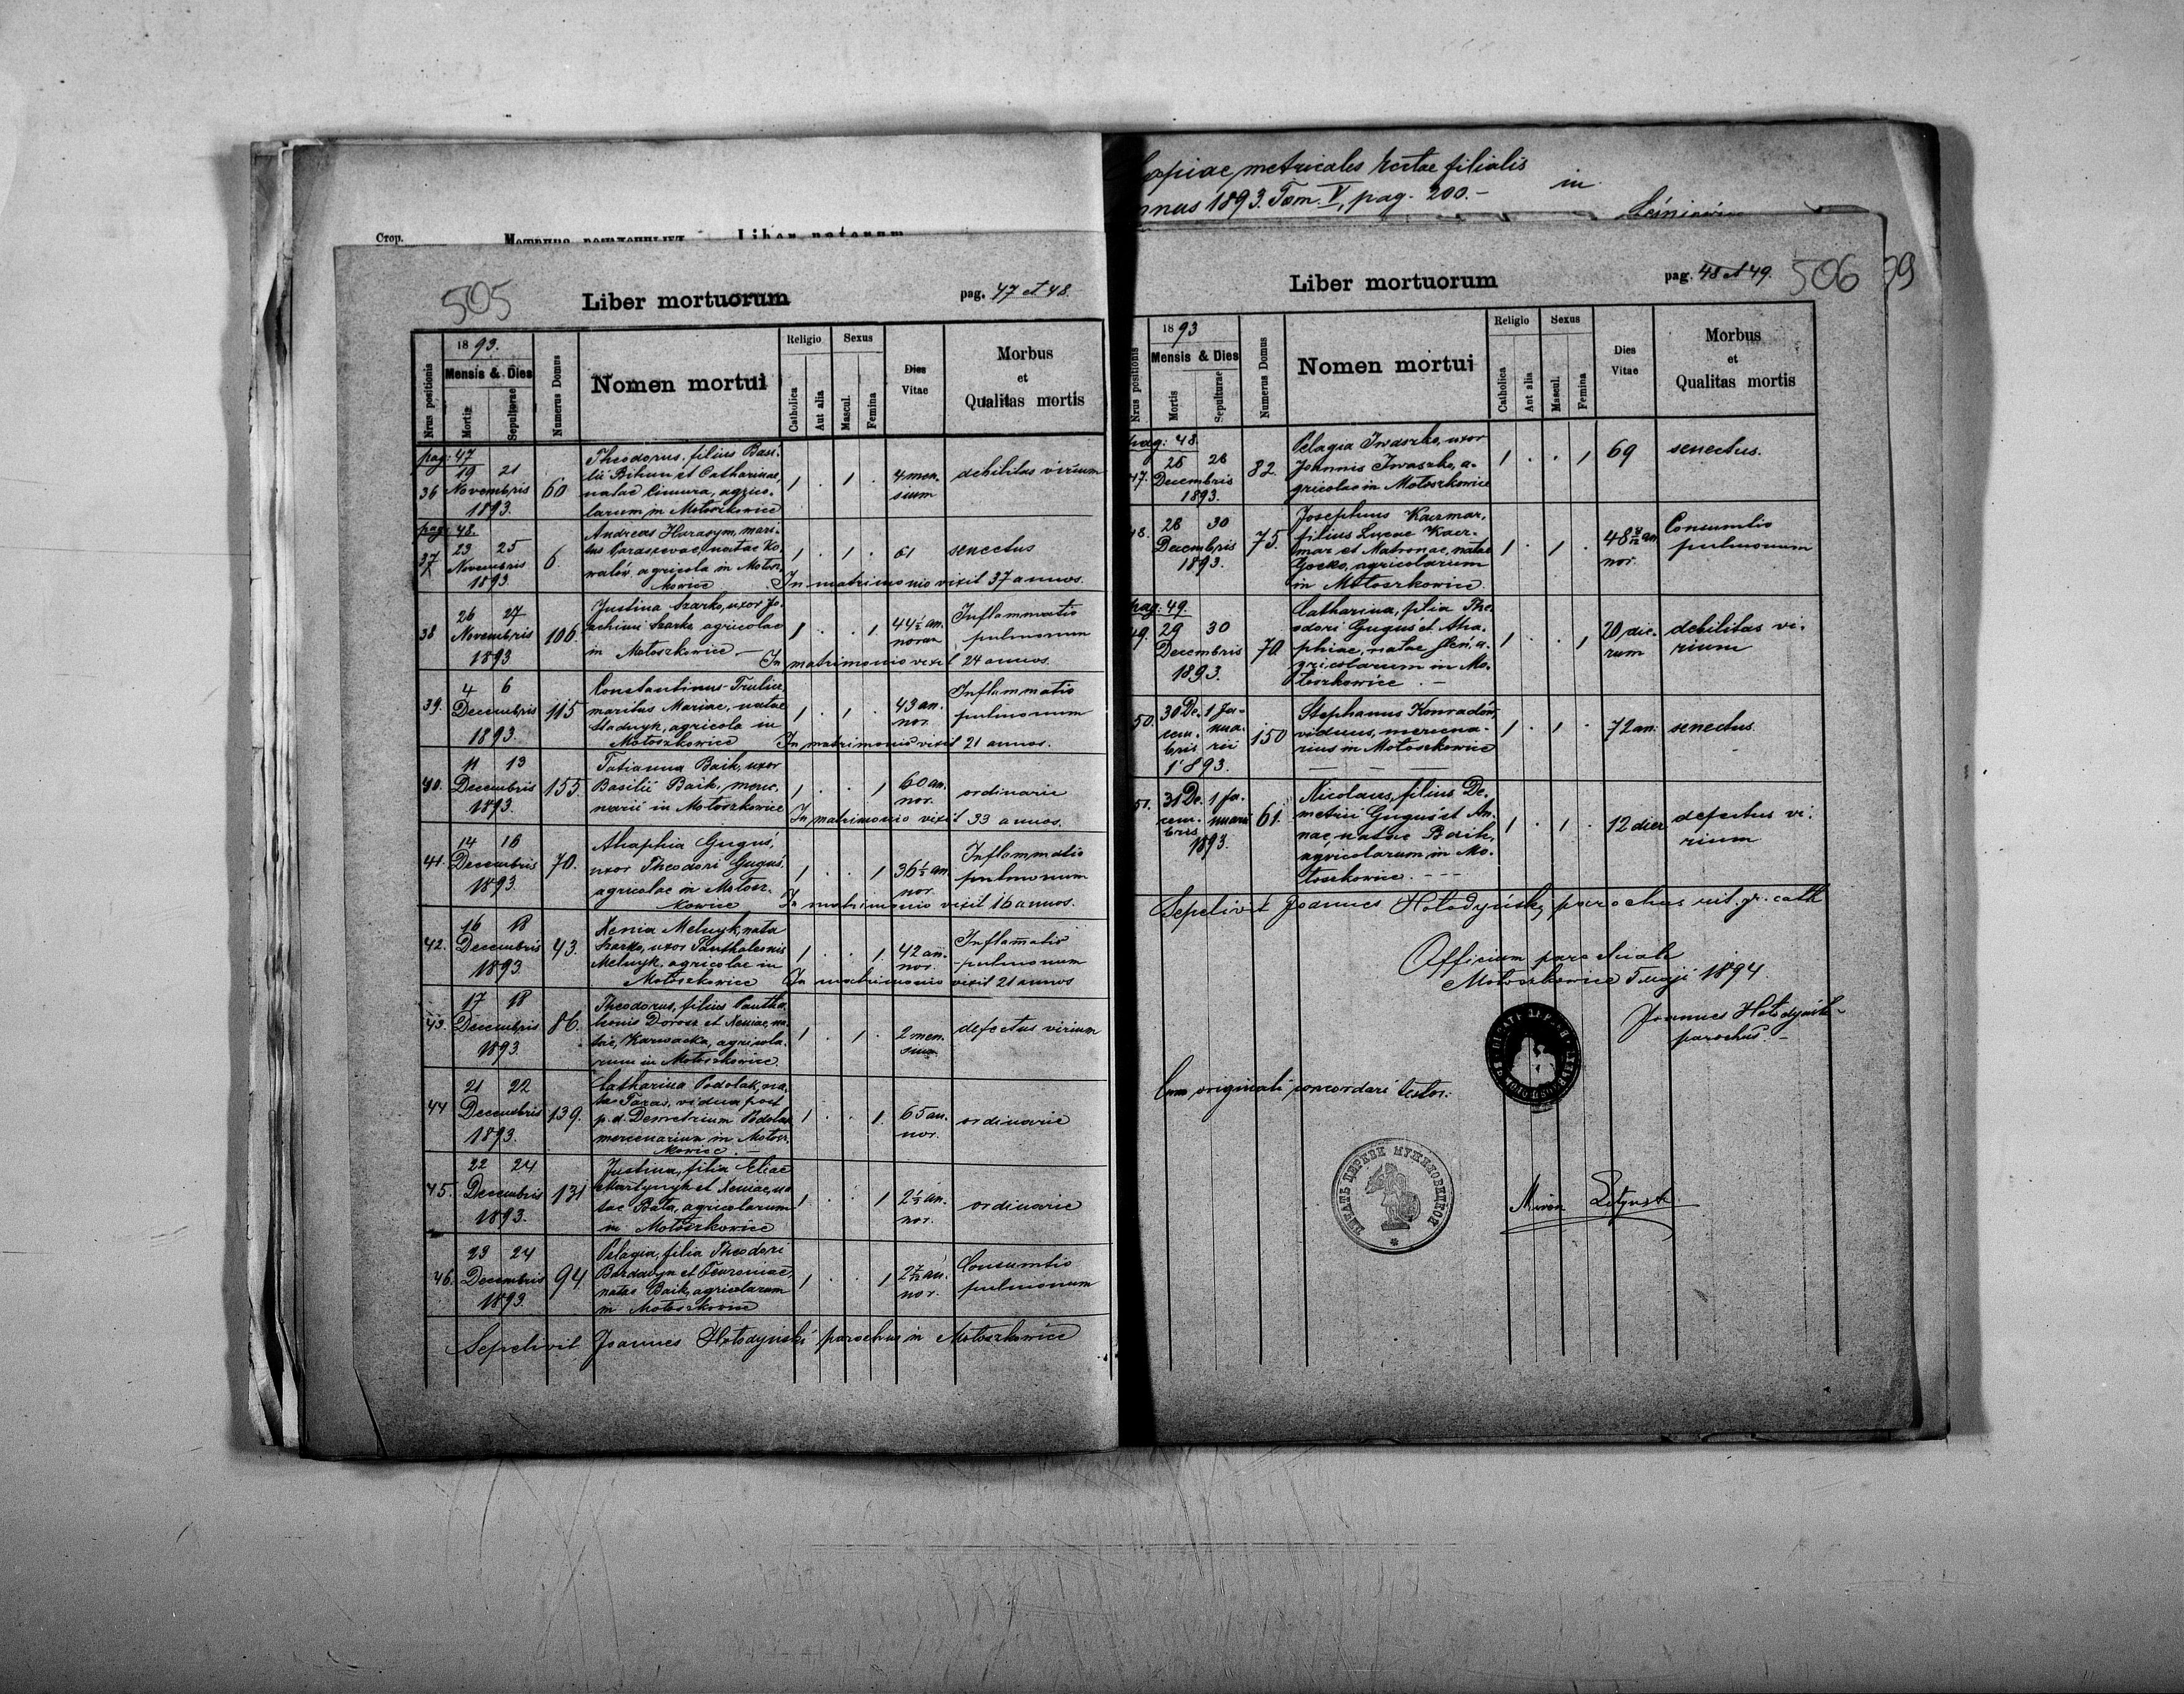 apiae metricales
filialis
in
1893. Tom. V, pag. 200.-
Стор.
505
Liber mortuorum
pag. 47 et 48.
Nrus positionis
1893.
Mensis & Dies
Mortis
Sepulturae
Numerus Domus
Nomen mortui
Religio
Catholica
Aut alia
Sexus
Mascul.
Femina
Dies
Vitae
Morbus
et
Qualitas mortis
pag: 47
36 19 21
Novembris
1893.
60
Theodorus, filius Basi-
lii Bihun et Catharinae,
natae agrico-
larum in Mołoszkowice
1 . 1 .
4 men-
sium
debilitas virium
pag: 48.
37 23 25
Novembris
1893.
6.
Andreas Harasym, mari-
tus Parascevae, natae Ko-
walów, agricola in Mołosz-
kowice
1 . 1 .
61
senectus
In matrimonio vixit 37 annos.
38 26 27
Novembris
1893
106.
Justina Szarko, uxor Jo-
achimi Szarko agricolae
in Mołoszkowice
1 . . 1.
44½ an-
norum
Inflammatio
pulmonum
In matrimonio vixit 24 annos.
39. 4 6
Decembris
1893.
115
Constantinus
maritus Mariae, natae
agricola in
Mołoszkowice
1 . 1 .
43 an-
nor.
Inflammatio
pulmonum
In matrimonio vixit 21 annos.
40. 11 13
Decembris
1893.
155.
Tatianna Baik, uxor
Basilii Baik, merce-
narii in Mołoszkowice
1 . . 1
60 an-
nor.
ordinarie
In matrimonio vixit 33 annos.
41. 14 16
Decembris
1893.
70.
Ahaphia Guguś,
uxor Theodori Guguś,
agricolae in Mołosz-
kowice
1 . . 1
36½ an
nor.
Inflammatio
pulmonum
In matrimonio vixit 16 annos.
42. 16 18
Decembris
1893
43.
Xenia Melnyk, nata
Szarko, uxor Panthaleonis
Melnyk, agricolae in
Mołoszkowice
1 . . 1.
42 an-
nor.
Inflam̄atio
pulmonum
In matrimonio vixit 21 annos
43. 17 18
Decembris
1893.
86.
Theodorus, filius Pantha-
leonis Dorosz et Xeniae, na-
tae agricola-
rum in Mołoszkowice
1 . 1 .
2 men-
sium
defectus virium
44 21 22
Decembris
1893.
139.
Catharina Podolak, na-
ta Taras, vidua post
p. d. Demetrium Podolak
mercenarium in Mołosz-
kowice. –
1 . . 1.
65 an-
nor.
ordinarie
45. 22 24
Decembris
1893.
131
Justina, filia Eliae
Martynyk et Xeniae, na-
tae Bała, agricolarum
in Mołoszkowice
1 . . 1
2½ an.
nor.
ordinarie
46. 23 24
Decembris
1893.
94.
Pelagia, filia Theodori
natae Baik, agricolarum
in Mołoszkowice
1 . . 1
an.
nor.
Consumtio
pulmonum
Sepelivit Joannes Hołodyński parochus in Mołoszkowice
Liber mortuorum
pag. 48 et 49.
506
99
Nrus positionis
1893
Mensis & Dies
Mortis
Sepulturae
Numerus Domus
Nomen mortui
Religio
Catholica
Aut alia
Sexus
Mascul.
Femina
Dies
Vitae
Morbus
et
Qualitas mortis
pag: 48.
47. 26 28
Decembris
1893.
82.
Pelagia Iwaszko, uxor
Joannis Iwaszko, a-
gricolae in Mołoszkowice
1 . . 1
69
senectus.
48. 28 30
Decembris
1893.
75.
Josephus Kaczmar,
filius Lucae Kacz-
mar et Matronae, natae
Gocko, agricolarum
in Mołoszkowice.
1 . 1 .
an
nor.
Consumtio
pulmonum
pag: 49.
49. 29 30
Decembris
1893.
70.
Catharina, filia The-
odori Guguś et Aha-
phiae, natae a-
gricolarum in Mo-
łoszkowice. –
1 . . 1
20 die-
rum
debilitas vi-
rium
50. 30 De- 1 Ja-
cem- nua-
bris rii
1893.
150
Stephanus Konradów,
viduus, mercena-
rius in Mołoszkowice
1 . 1 .
72 an:
senectus
51. 31 De- 1 Ja-
cem- nuarii
bris
1893.
61.
Nicolaus, filius De-
metrii Guguś et An-
nae, natae Baik,
agricolarum, in Mo-
łoszkowice. - - -
1 . 1 .
12 dier
defectus vi-
rium
Sepelivit Joannes Hołodyński, parochus rit. gr. cath
Officium parochiale
Mołoszkowice 5 maji 1894.
Joannes Hołodyński
parochus. –
Cum originali concordari testor:
ПЕЧАТЬ ЦЕРКВИ МУЖИЛОВИЦКОЙ